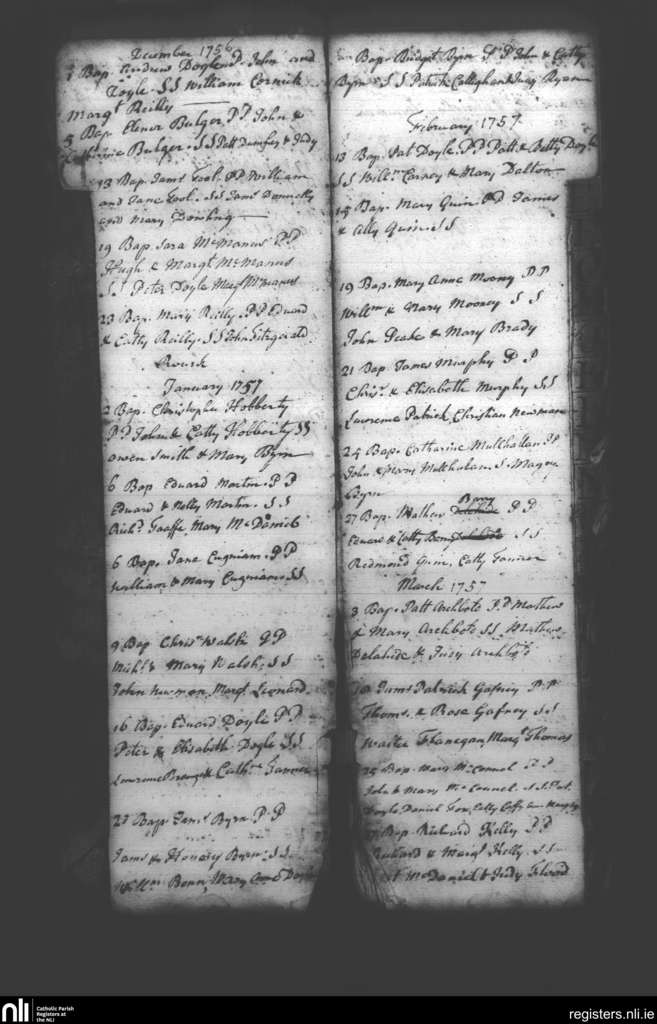 December 1756
1 Bap. Andrew Doyle P. P. John and
Doyle S S William Cormick
Margt Reilly
5 Bap Elenor Bulger P P John &
Catherine Bulger. S S Patt Dumfey & Judy
13 Bap. Jams Tool. P P William
and Jane Tool. S S Jams Donnelly
and Mary Dowling
19 Bap. Sara McManus P P
Hugh & Margt McManus
S S Peter Doyle McManus
23 Bap. Mary Reilly P P Edward
& Catty Reilly. S S John Fitzgerald
Rourk
January 1757
2 Bap. Christopher Hobberty
P P John & Catty Hobberty S S
Owen Smith & Mary Byrn
6 Bap Eduard Martin P P
Eduard & Nelly Martin. S S
Richd. Taaffe, Mary McDaniel
6 Bap. Jane Eugniam. P P
William & Mary Eugniam S S
9 Bap Chrisr Walsh P P
Michl & Mary Walsh. S S
John Newman, Margt Leonard
16 Bap. Eduard Doyle P P
Peter & Elisabeth Doyle S S
Lawrence & Cathre Farmer
23 Bap. Jams Byrn P P
Jams & Honory Byrn. S S
Wm Bonn, Mary
Bap. Bridget Byrn P P John & Catty
Byrn S S Patrick Callaghan & Judy Ryan
February 1757
13 Bap. Pat Doyle. P P Patt & Betty Doyle
S S Willm Carney & Mary Dalton
15 Bap. Mary Guin P P James
& Ally Guin S S
19 Bap. Mary Anne Mooney P P
Willm & Mary Mooney S S
John Peake & Mary Brady
21 Bap. James Murphy P P
Chrisr & Elisabeth Murphy S S
Lawrence Patrick, Christian Newman
24 Bap. Catharine Mulhallan P P
John & Mary Mulhalan S.
Byrn
27 Bap. Mathew Barry P P
Eduard & Catty S S
Redmond Guin, Catty Farmer
March 1757
3 Bap. Patt Archbole P P Mathew
& Mary Archbole S S Mathew
Delahide & Judy Archbole
10 Jams Patrick Gafney P P
Thoms. & Rose Gafney S S
Walter Flanegan, Margt Thomas
25 Bap. Mary McConnel P P
John & Mary McConnel S S Pat.
Doyle Daniel Fox, Catty
Bap. Richard Kelly P P
Richard & Margt Kelly. S S
McDaniel & Judy Flood
nli
Catholic Parish
Registers at
the NLI
registers.nli.ie